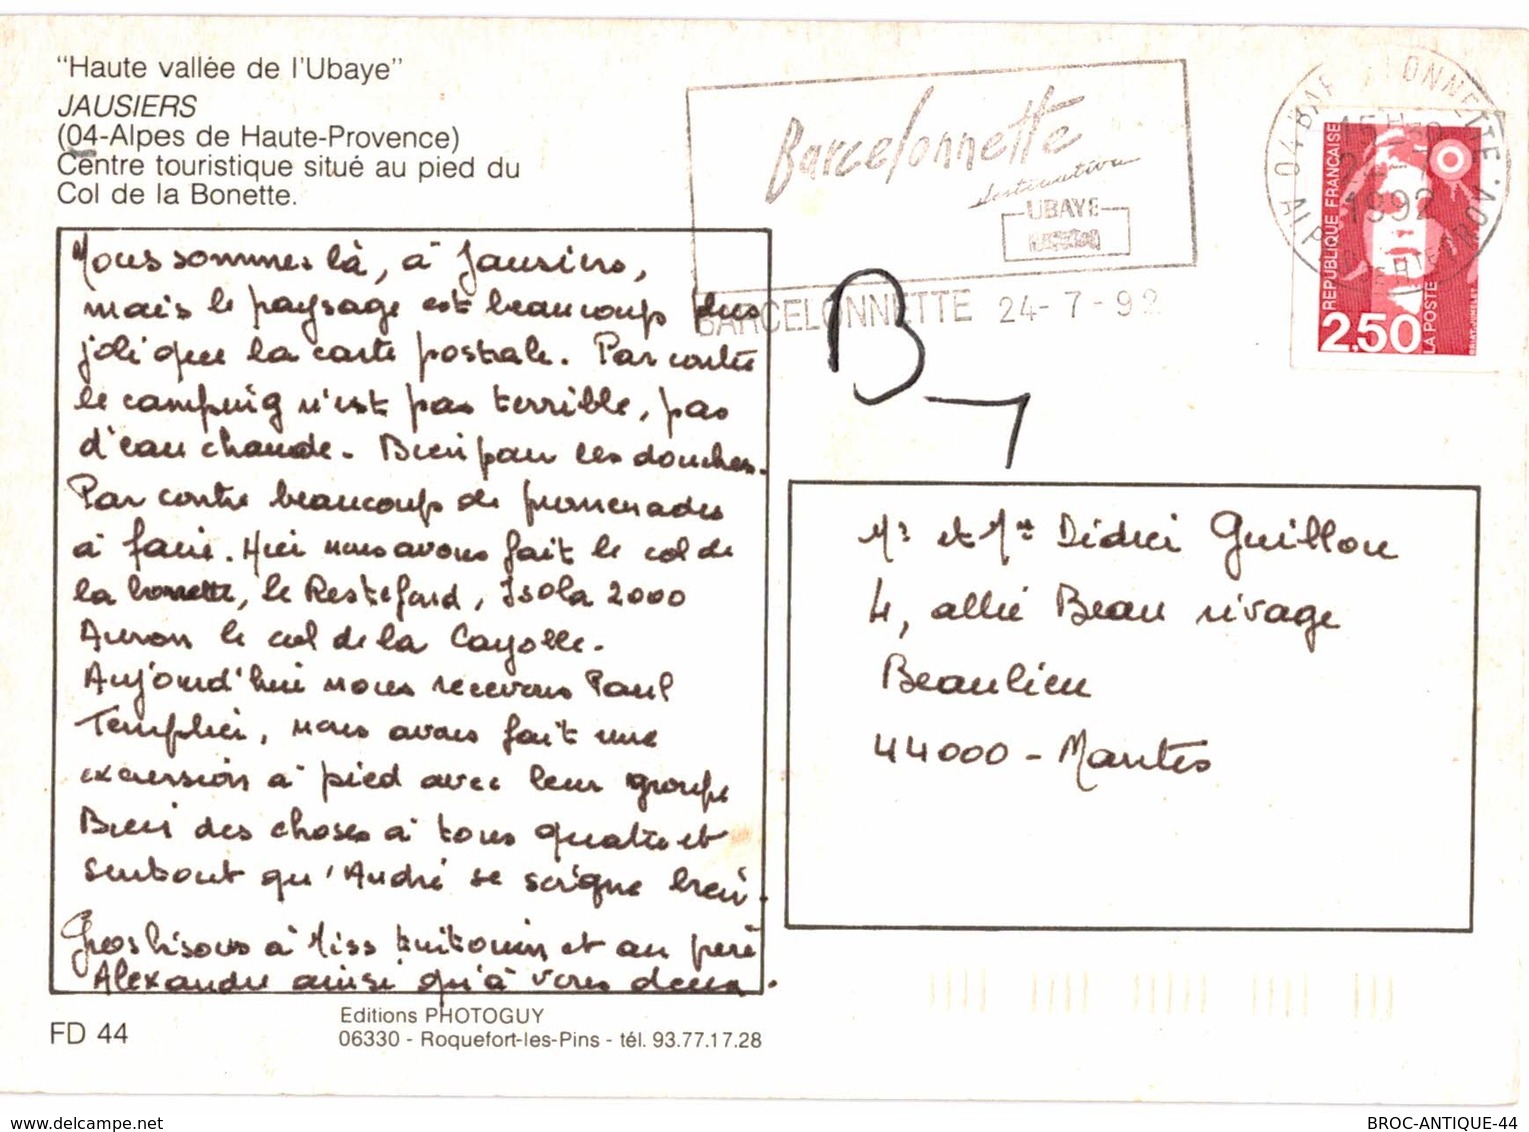 "Haute vallée de l'Ubaye"
JAUSIERS
(04-Alpes de Haute-Provence)
Centre touristique situé au pied du
Col de la Bonette.
Nous sommes là, à Jausiers,
mais le paysage est beaucoup plus
joli que la carte postale. Par contre
le camping n'est pas terrible, pas
d'eau chaude. Bien pour les douches.
Par contre beaucoup de promenades
à faire. Hier nous avons fait le col de
la bonette, le Restefond, Isola 2000
Auron le col de la Cayolle.
Aujourd'hui nous recevons Paul
Templier, nous avons fait une
excursion à pied avec leur groupe
Bien des choses à tous quatre et
surtout qu'André se soigne bien.
Gros bisous à Miss et au père
Alexandre ainsi qu'à vous deux.
FD 44
Editions PHOTOGUY
06330 - Roquefort-les-Pins - tél. 93.77.17.28
Barcelonnette
destination
UBAYE
BARCELONNETTE 24-7-92
04 BARCELONNETTE
15H30
24-7
1992
REPUBLIQUE FRANÇAISE
2,50
LA POSTE
B
Mr et Me Didier Guillou
4, allée Beau rivage
Beaulieu
44000 - Nantes
www.delcampe.net
BROC-ANTIQUE-44